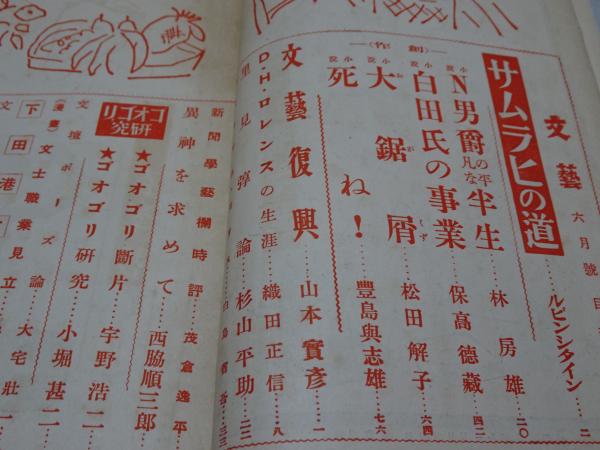 文藝 六月號
サムラヒの道……ルビンシタイン…二
―(創作)―
小説 N男爵の平凡な半生……林房雄…二〇
小説 白田氏の事業……保高德藏…四二
小説 大鋸屑……松田解子…六四
おがくず
小説 死ね！……豐島與志雄…七六
文藝復興……山本實彥…一
D・H・ロレンスの生涯……織田正信…八
里見弴論……杉山平助…三三
新聞學藝欄時評……茂倉逸平
異神を求めて……西脇順三郎
ゴオゴリ研究
★ゴオゴリ斷片……宇野浩二
★ゴオゴリ研究……小堀甚二
文壇ポーズ論……大宅壯一
(漫畫)文士職業見立
下田港